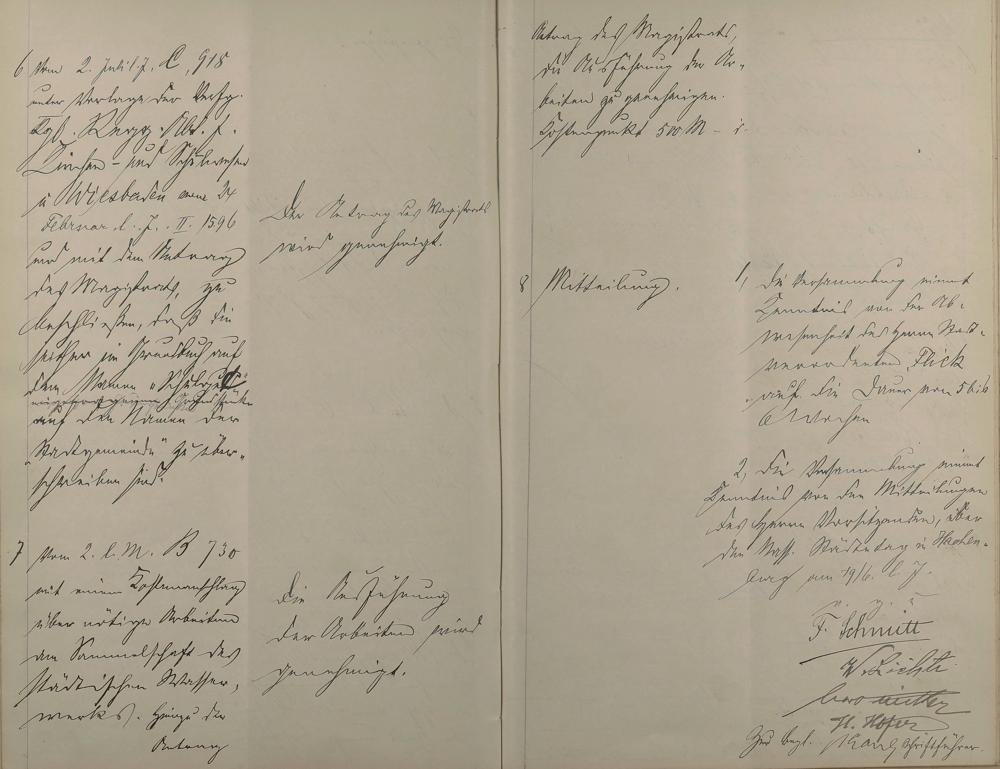 6 Vom 2. Juli l. J. C. 918
unter Vorlage der Verfg.
Kgl. Regg. Abt. f.
Kirchen- und Schulwesen
in Wiesbaden vom 24
Februar l. J. II. 1596
und mit dem Antrag
des Magistrats, zu
beschließen, daß die
seither im Grundbuch auf
dem Namen "Schulgut"
eingetragenen Grundstücke
auf den Namen der
"Stadtgemeinde" zu über-
schreiben sind.
Der Antrag des Magistrats
wird genehmigt.
7 Vom 2. l. M. B 730
mit einem Kostenanschlag
über nötige Arbeiten
am Sammelschacht des
städtischen Wasser-
werks. Hierzu der
Antrag
Die Ausführung
der Arbeiten wird
genehmigt.
Antrag des Magistrats,
die Ausführung der Ar-
beiten zu genehmigen.
Kostenpunkt 500 M
8 Mitteilung.
1, Die Versammlung nimmt
Kenntnis von der Ab-
wesenheit des Herrn Stadt-
verordneten Flick
auf die Dauer von 5 bis
6 Wochen
2, Die Versammlung nimmt
Kenntnis von den Mitteilungen
des Herrn Vorsitzenden, über
den Nass. Städtetag in Hachen-
burg am 19/6. l. J.
v. g. u.
F. Schmitt
W. Lichti
H. Hofer
Zur Begl. Schriftführer.